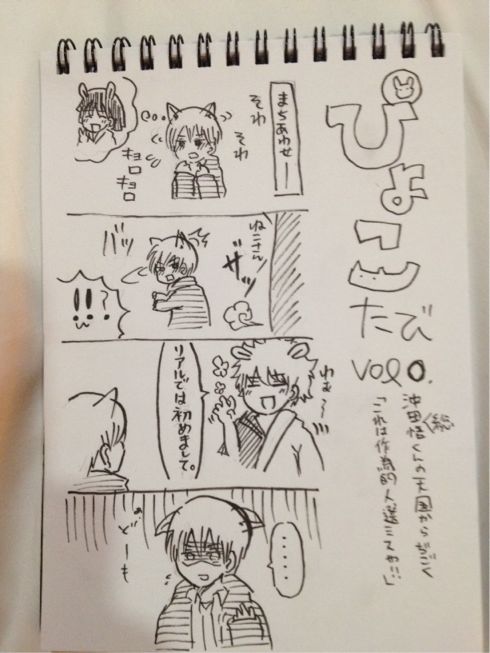 ぴょこ
たび
vol 0.
沖田悟くんの天国からぢごく
総
「これは作為的人選ミスか!!」
まちあわせー
そわ
そわ
キョロ
キョロ
ねこさん
ザッ
バッ
!!?
リアルでは初めまして。
・・・・・
どーも